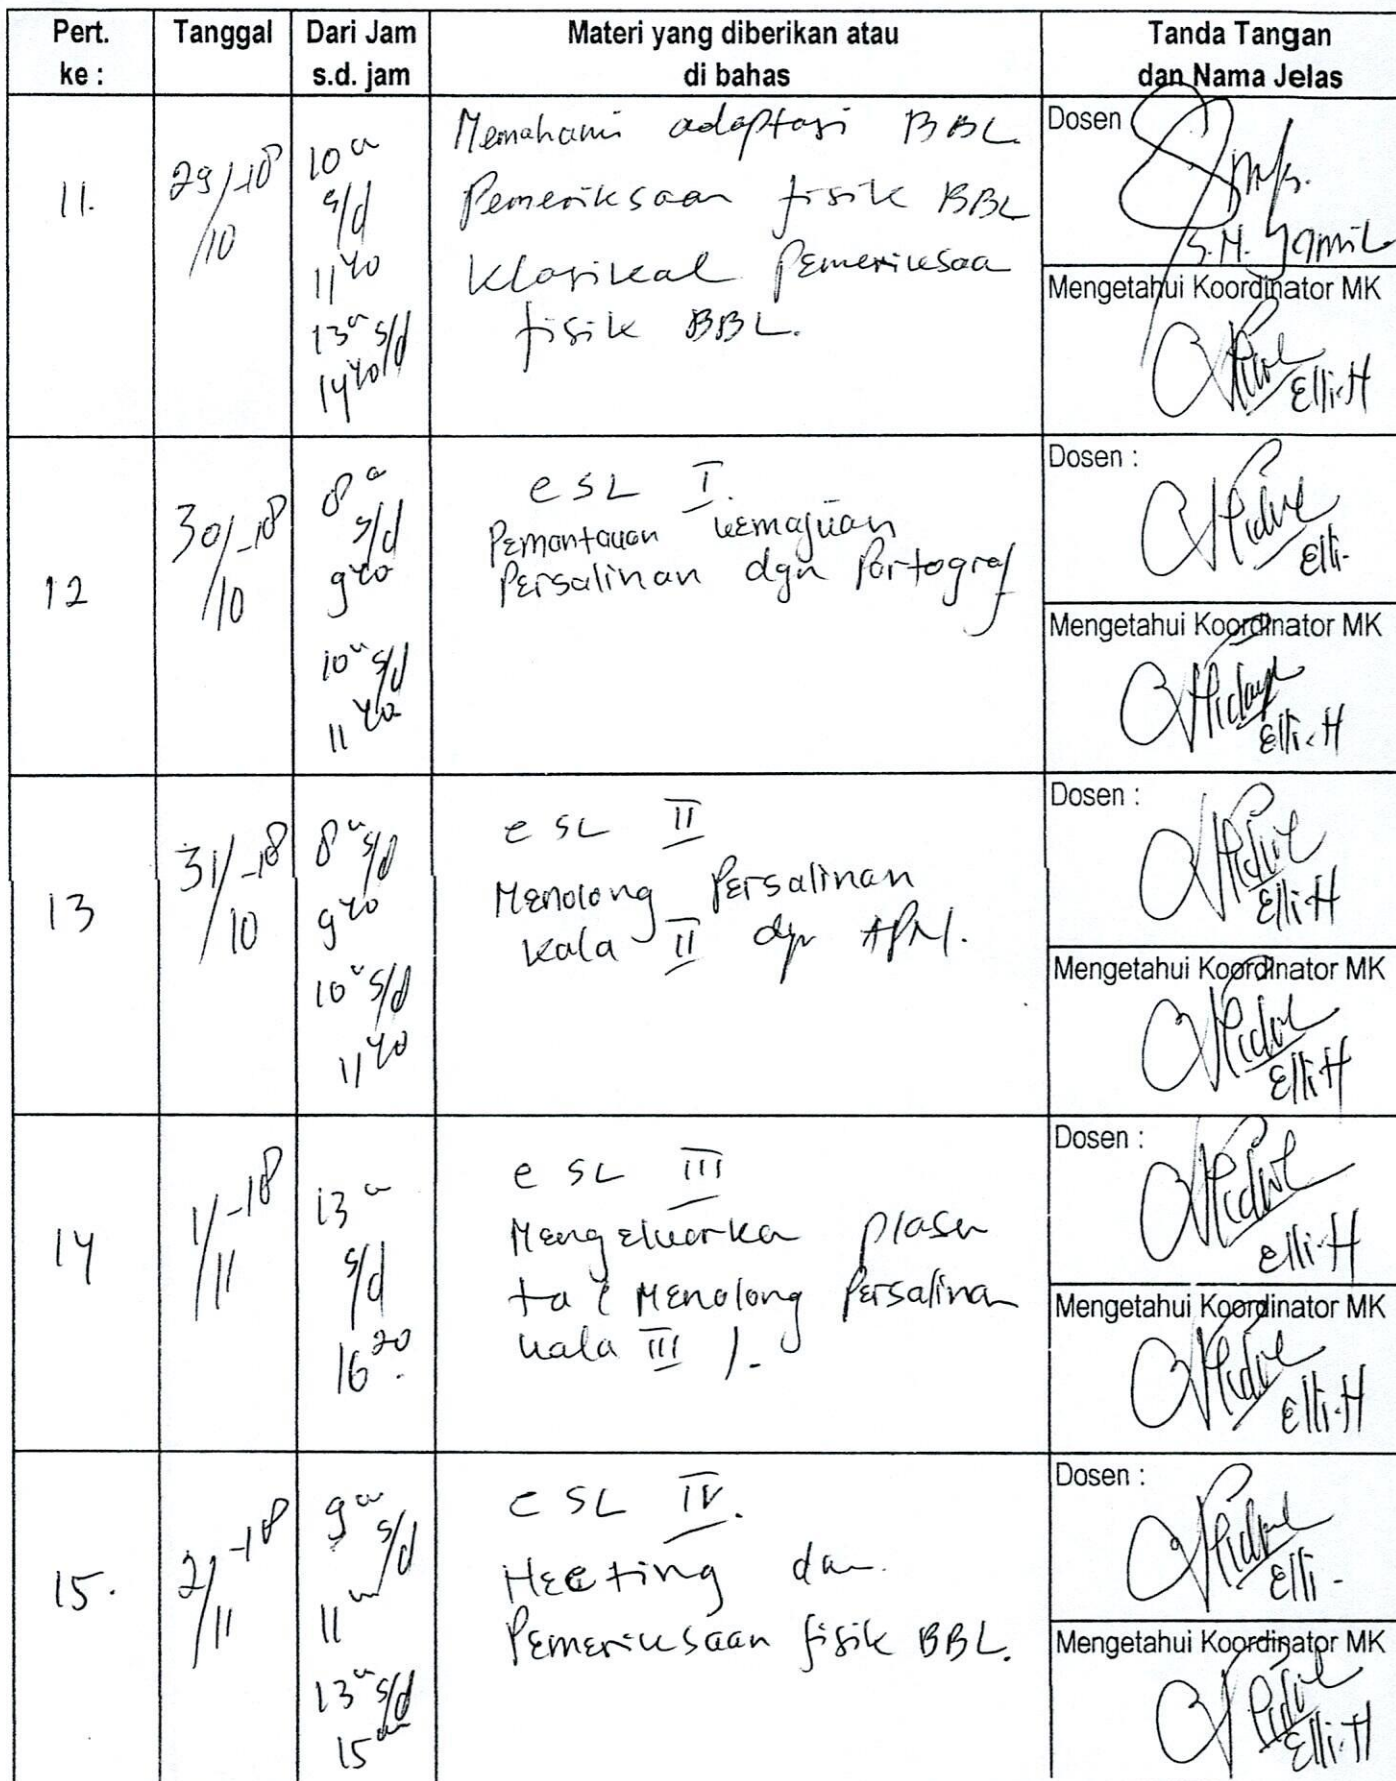 Pert. ke :
Tanggal
Dari Jam s.d. jam
Materi yang diberikan atau di bahas
Tanda Tangan dan Nama Jelas
11.
29/10-18
10ºº
s/d
11⁴⁰
13ºº s/d
14⁴⁰
Memahami adaptasi BBL
Pemeriksaan fisik BBL
Klasikal Pemeriksaa
fisik BBL.
Dosen
Mengetahui Koordinator MK
Elli.H
12
30/10-18
8ºº
s/d
9⁴⁰
10ºº s/d
11⁴⁰
e SL I.
Pemantauan kemajuan
Persalinan dgn Partograf
Dosen :
Elli.
Mengetahui Koordinator MK
Elli.H
13
31/10-18
8ºº s/d
9⁴⁰
10ºº s/d
11⁴⁰
e SL II
Menolong Persalinan
kala II dgn APN.
Dosen :
Elli.H
Mengetahui Koordinator MK
Elli.H
14
1/11-18
13ºº
s/d
16²⁰.
e SL III
Mengeluarka plasen
ta ( Menolong Persalinan
kala III ).
Dosen :
Elli.H
Mengetahui Koordinator MK
Elli.H
15.
2/11-18
9ºº s/d
11ºº
13ºº s/d
15ºº
e SL IV.
Hecting dan
Pemeriksaan fisik BBL.
Dosen :
Elli.
Mengetahui Koordinator MK
Elli.H